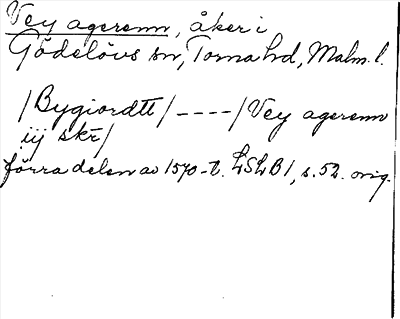 Vey agerenn, åker i
Gödelövs sn, Torna hd, Malm. l.
/Bygiordtt/----/Vey agerenn
iij skr/
förra delen av 1570-t. LSLB1, s. 52. orig.